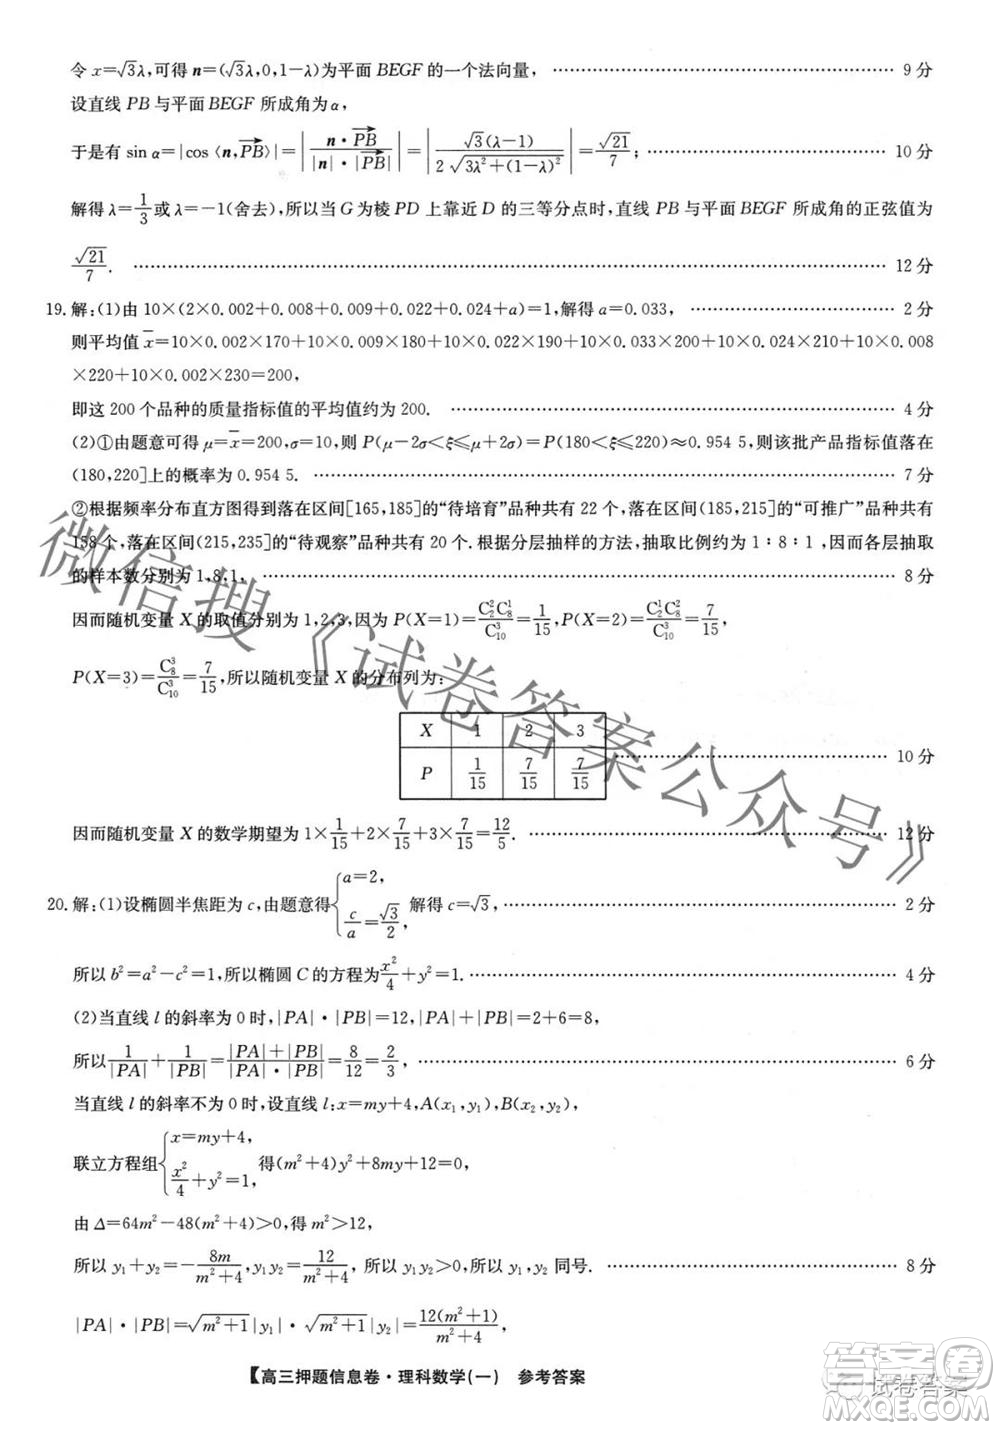 令 x=√3λ,可得 n=(√3λ,0,1−λ)为平面 BEGF 的一个法向量, …… 9 分
设直线 PB 与平面 BEGF 所成角为 α,
于是有 sin α=|cos⟨n,PB⟩|=|n·PB/(|n|·|PB|)|=|√3(λ−1)/(2√(3λ²+(1−λ)²))|=√21/7; …… 10 分
解得 λ=1/3或 λ=−1(舍去),所以当 G 为棱 PD 上靠近 D 的三等分点时,直线 PB 与平面 BEGF 所成角的正弦值为
√21/7. …… 12 分
19.解:(1)由 10×(2×0.002+0.008+0.009+0.022+0.024+a)=1,解得 a=0.033, …… 2 分
则平均值 x̄=10×0.002×170+10×0.009×180+10×0.022×190+10×0.033×200+10×0.024×210+10×0.008
×220+10×0.002×230=200,
即这 200 个品种的质量指标值的平均值约为 200. …… 4 分
(2)①由题意可得 μ=x̄=200,σ=10,则 P(μ−2σ<ξ≤μ+2σ)=P(180<ξ≤220)≈0.954 5,则该批产品指标值落在
(180,220]上的概率为 0.954 5. …… 7 分
②根据频率分布直方图得落在区间[165,185]的“待培育”品种共有 22 个,落在区间(185,215]的“可推广”品种共有
158 个,落在区间(215,235]的“待观察”品种共有 20 个.根据分层抽样的方法,抽取比例约为 1∶8∶1,从而各层抽取
的样本数分别为 1,8,1, …… 8 分
因而随机变量 X 的取值分别为 1,2,3,P(X=1)=C₂²C₈¹/C₁₀³=1/15,P(X=2)=C₂¹C₈²/C₁₀³=7/15,
P(X=3)=C₈³/C₁₀³=7/15,所以随机变量 X 的分布列为:
X 1 2 3
P 1/15 7/15 7/15 …… 10 分
因而随机变量 X 的数学期望为 1×1/15+2×7/15+3×7/15=12/5. …… 12 分
20.解:(1)设椭圆半焦距为 c,由题意得{a=2, c/a=√3/2, 解得 c=√3, …… 2 分
所以 b²=a²−c²=1,所以椭圆 C 的方程为x²/4+y²=1. …… 4 分
(2)当直线 l 的斜率为 0 时,|PA|·|PB|=12,|PA|+|PB|=2+6=8,
所以1/|PA|+1/|PB|=(|PA|+|PB|)/(|PA|·|PB|)=8/12=2/3, …… 6 分
当直线 l 的斜率不为 0 时,设直线 l:x=my+4,A(x₁,y₁),B(x₂,y₂),
联立方程组{x=my+4, x²/4+y²=1, 得(m²+4)y²+8my+12=0,
由 Δ=64m²−48(m²+4)>0,得 m²>12,
所以 y₁+y₂=−8m/(m²+4),y₁y₂=12/(m²+4),所以 y₁y₂>0,所以 y₁,y₂ 同号. …… 8 分
|PA|·|PB|=√(m²+1)|y₁|·√(m²+1)|y₂|=12(m²+1)/(m²+4),
【高三押题信息卷·理科数学(一) 参考答案
微信搜《试卷答案公众号》
试卷答案
答案圈
MXQE.COM